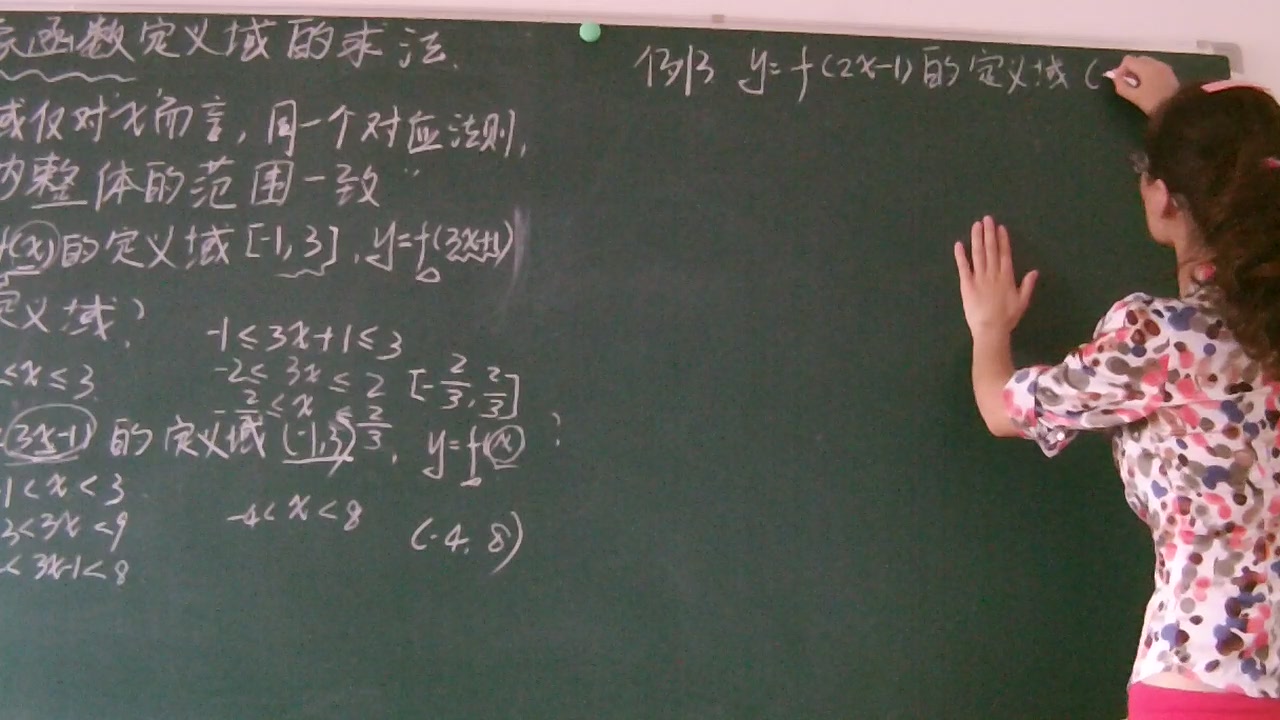 函数定义域的求法.
域仅对x而言,同一个对应法则,
整体的范围一致"
(x)的定义域[-1,3],y=f(3x+1)
定义域?
-1≤3x+1≤3
≤x≤3
-2≤3x≤2
[-2/3,2/3]
-2/3≤x≤2/3
(3x-1)的定义域(-1,3),y=f(x)?
-1<x<3
-4<x<8
3<3x<9
(-4,8)
<3x-1<8
例3 y=f(2x-1)的定义域(